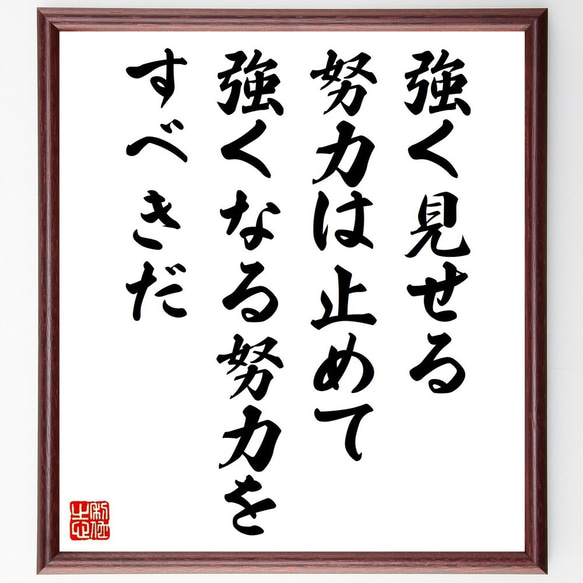 強く見せる
努力は止めて
強くなる努力を
すべきだ